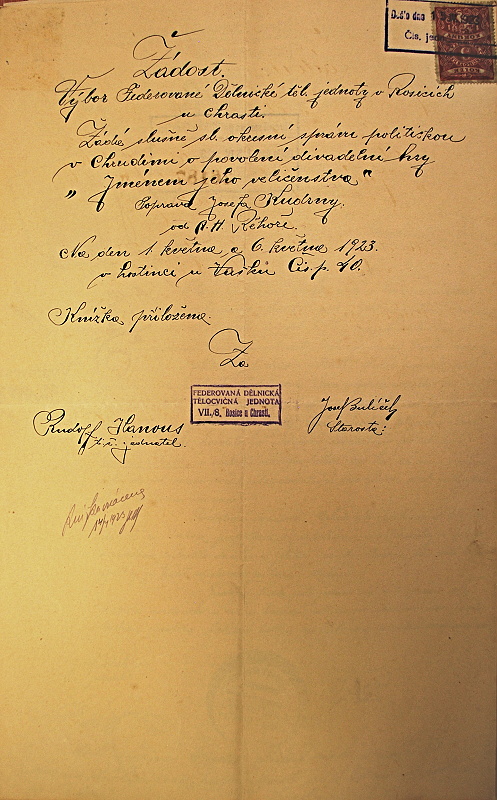 Došlo dne
Čís. jed
Žádost.
Výbor Federované Dělnické těl. jednoty v Rosicích
u Chrasti.
Žádá slušně sl. okresní správu politickou
v Chrudimi o povolení divadelní hry
„Jménem jeho veličenstva“
Poprava Josefa Kudrny.
od A. H. Řehoře.
Na den 1. května a 6. května 1923.
v hostinci u Vašků Čís p. 40.
Knížka přiložena.
Za
FEDEROVANÁ DĚLNICKÁ
TĚLOCVIČNÁ JEDNOTA
VII./8, Rosice u Chrasti,
Rudolf Hanous
t.č. jednatel.
Starosta: